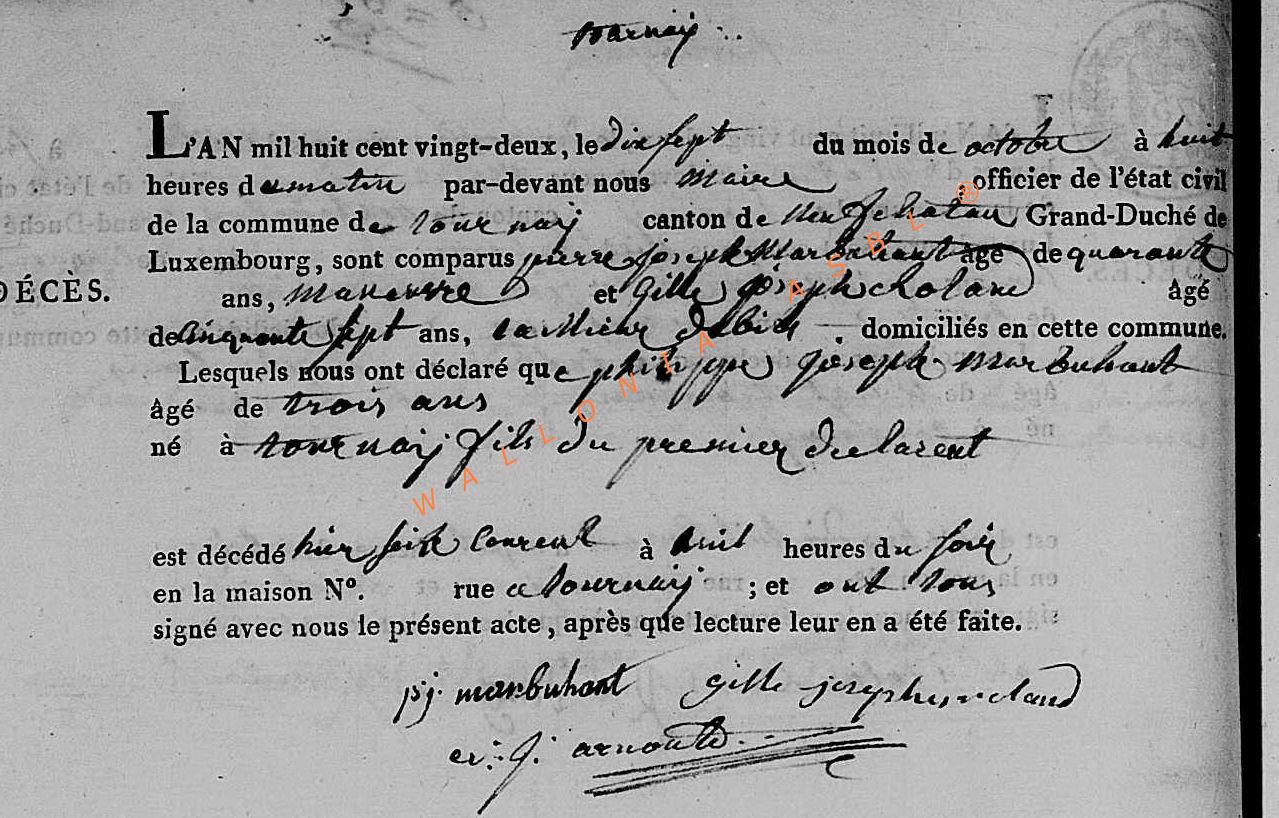 tournay
L'AN mil huit cent vingt-deux, le dix sept du mois de octobre à huit
heures du matin par-devant nous Maire officier de l'état civil
de la commune de tournay canton de Neufchateau Grand-Duché de
Luxembourg, sont comparus pierre joseph Marbuhant âgé de quarante
DÉCÈS.
ans, et Gille joseph âgé
de Cinquante sept ans, domiciliés en cette commune.
Lesquels nous ont déclaré que philippe joseph marbuhant
âgé de trois ans
né à tournay fils du premier declarent
est décédé hier seize Courent à huit heures du soir
en la maison N°. rue a tournay ; et ont tous
signé avec nous le présent acte, après que lecture leur en a été faite.
pj. marbuhant Gille joseph
j. arnould
WALLONIA ASBL ®